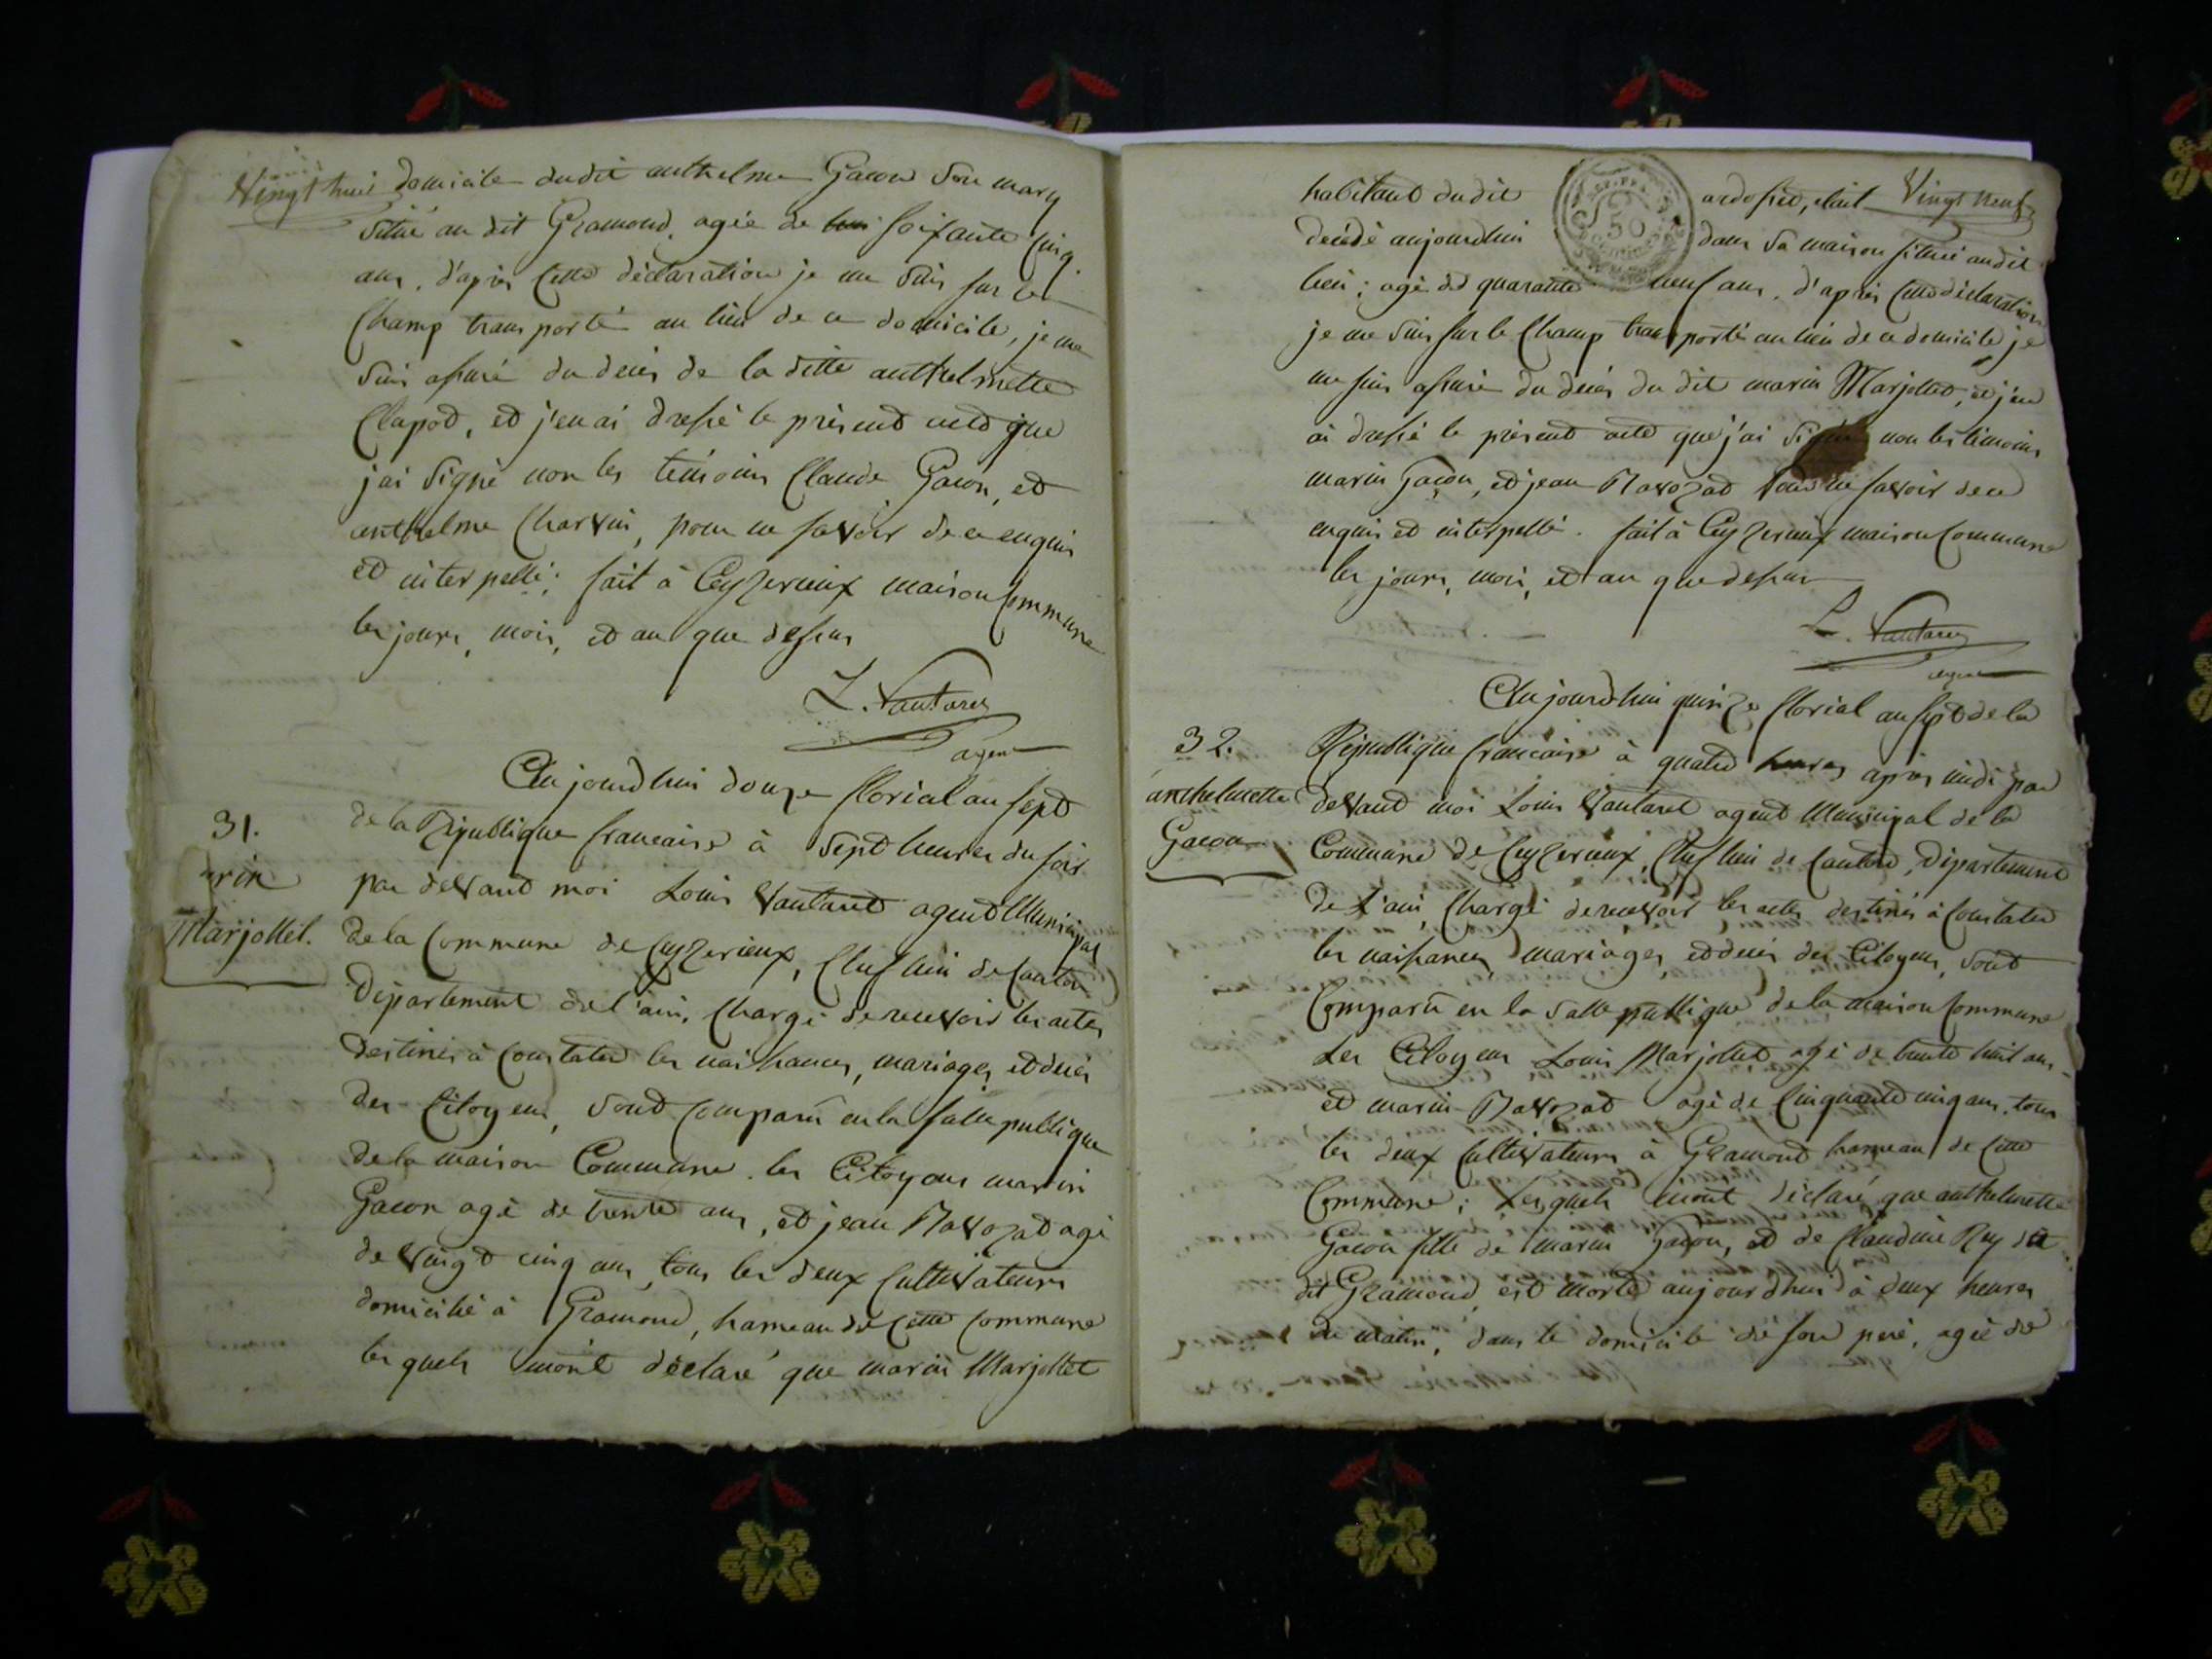 Vingt huit
domicile dudit anthelme Gacon son mary
situé au dit Gramond, agée de soixante cinq
ans. d'après cette déclaration je me suis sur le
Champ transporté au lieu de ce domicile, je me
suis assuré du decès de la ditte anthelmette
Clapod, et j'en ai dressé le présent acte que
j'ai signé non les témoins Claude Gacon, et
anthelme Charvin, pour ne savoir de ce enquis
et interpellé; fait à Ceyzerieux maison Commune
les jours, mois, et an que dessus
L. Vantaret
agent
31.
rin
Marjollet.
Aujourdhui douze floréal an sept
de la République francaise à sept heures du soir
par devant moi Louis Vantaret agent Municipal
de la Commune de Ceyzerieux, Chef lieu de Canton
Département de l'ain, Chargé de recevoir les actes
destinés à Constater les naissances, mariages, et decès
des Citoyens, sont comparu en la salle publique
de la maison Commune. les Citoyens marin
Gacon agé de trente ans, et jean Ravozat agé
de vingt cinq ans tous les deux Cultivateurs
domicilié à Gramond, hameau de Cette Commune
les quels m'ont déclaré que marin Marjollet
Vingt neuf
habitant dudit ardosset, etait
decédé aujourdhui dans sa maison située audit
lieu; agé de quarante neuf ans. d'après cette déclaration
je me suis sur le Champ transporté au lieu de ce domicile je
me suis assuré du decès du dit marin Marjollet, et j'en
ai dressé le présent acte que j'ai signé non les témoins
marin Gacon, et jean Ravozat pour ne savoir de ce
enquis et interpellé. fait à Ceyzerieux maison Commune
les jours, mois, et an que dessus
L. Vantaret
agent
32.
anthelmette
Gacon
Aujourdhui quinze floréal an sept de la
République francaise à quatre heures après midi par
devant moi Louis Vantaret agent Municipal de la
Commune de Ceyzerieux, Chef lieu de Canton, Département
de l'ain, Chargé de recevoir les actes destinés à Constater
les naissances, mariages, et decès des Citoyens, sont
Comparu en la salle publique de la maison Commune
Les Citoyens Louis Marjollet agé de trente huit ans
et marin Ravozat agé de Cinquante cinq ans, tous
les deux Cultivateurs à Gramond hameau de Cette
Commune; Lesquels m'ont déclaré que anthelmette
Gacon fille de marin Gacon, et de Claudine Rey du
dit Gramond est morte aujourdhui à deux heures
du matin, dans le domicile de son peré, agée de